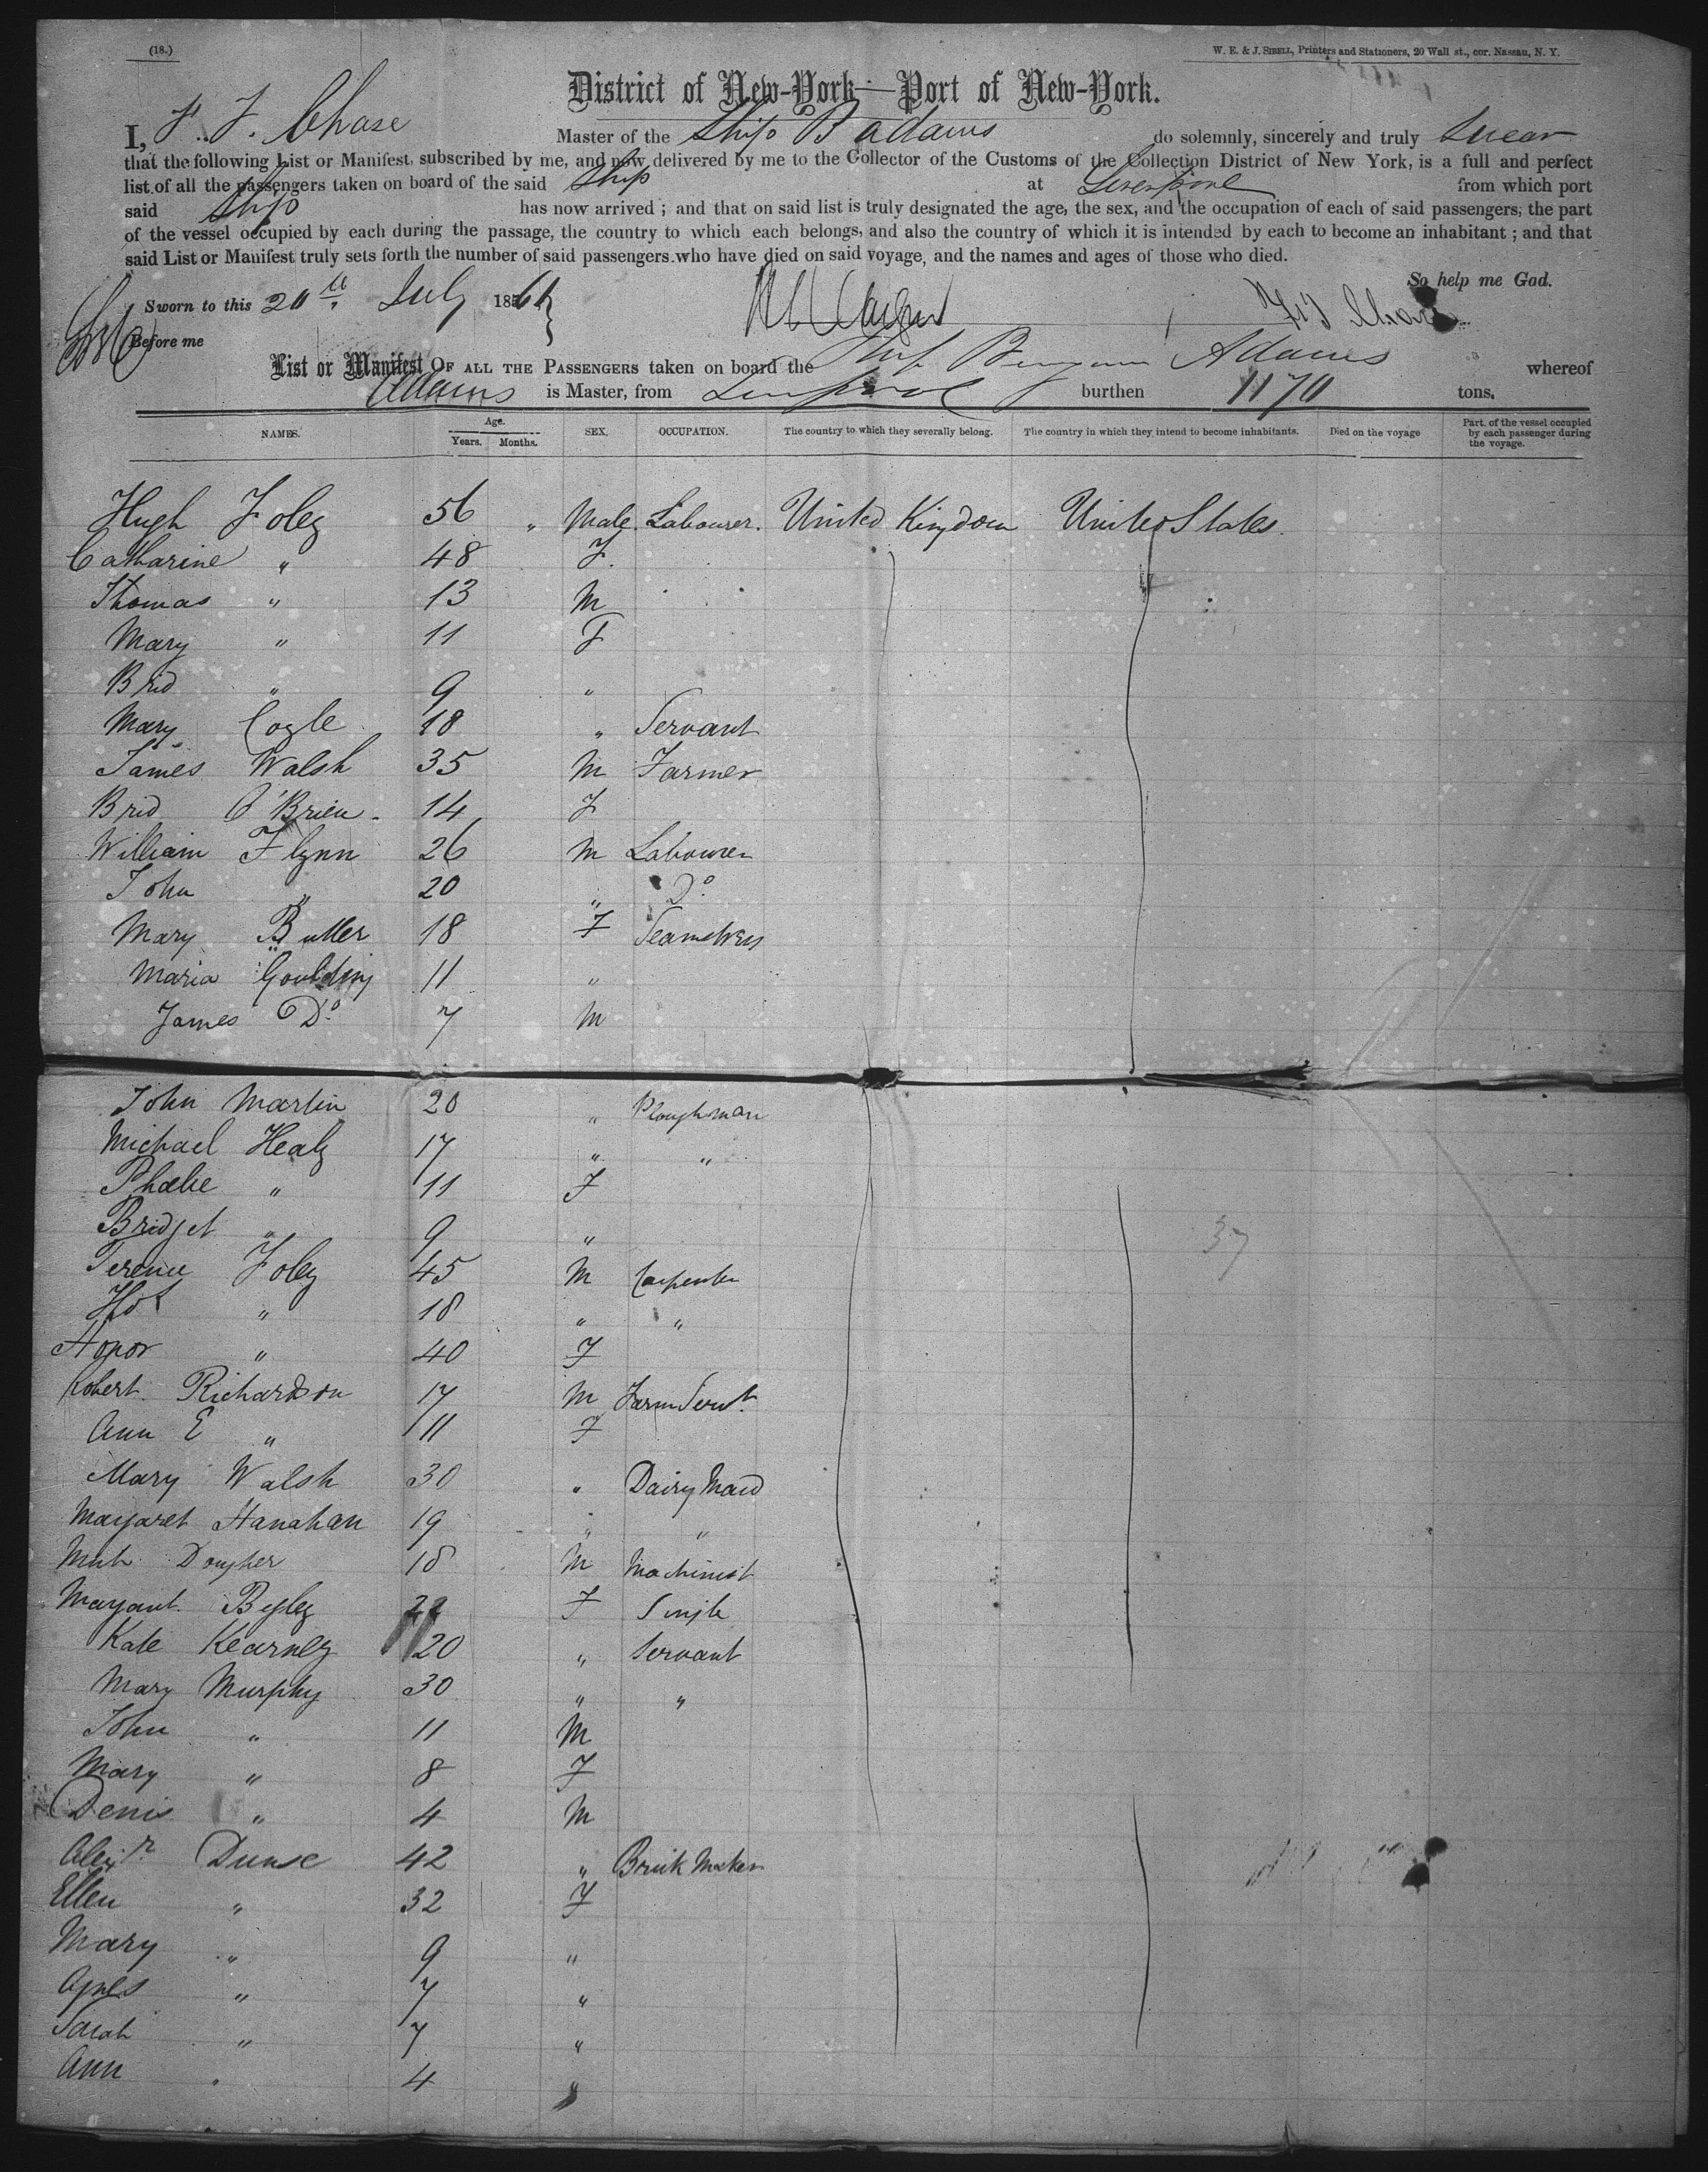 (18.)
W. E. & J. SIBELL, Printers and Stationers, 20 Wall st., cor. Nassau, N. Y.
District of New-York—Port of New-York.
I, F. J. Chase Master of the Ship B Adams do solemnly, sincerely and truly Swear
that the following List or Manifest, subscribed by me, and now delivered by me to the Collector of the Customs of the Collection District of New York, is a full and perfect
list of all the passengers taken on board of the said Ship at Liverpool from which port
said Ship has now arrived ; and that on said list is truly designated the age, the sex, and the occupation of each of said passengers, the part
of the vessel occupied by each during the passage, the country to which each belongs, and also the country of which it is intended by each to become an inhabitant ; and that
said List or Manifest truly sets forth the number of said passengers who have died on said voyage, and the names and ages of those who died.
So help me God.
Sworn to this 20th July 18
Before me
List or Manifest OF ALL THE PASSENGERS taken on board the Ship Adams whereof
Adams is Master, from Liverpool burthen 1170 tons.
NAMES. Age. Years. Months. SEX. OCCUPATION. The country to which they severally belong. The country in which they intend to become inhabitants. Died on the voyage Part of the vessel occupied by each passenger during the voyage.
Hugh Foley 56 " Male Labourer. United Kingdom United States.
Catharine " 48 F.
Thomas " 13 M
Mary " 11 F
Brid " 9 "
Mary Cogle 18 " Servant
James Walsh 35 M Farmer
Brid O'Brien 14 F
William Flynn 26 M Labourer
John " 20 " Do
Mary Butler 18 F Seamstress
Maria Goulding 11 "
James Do 7 M
John Martin 20 " Ploughman
Michael Healy 17 " "
Phœbe " 11 F
Bridget " 9 "
Terence Foley 45 M Carpenter
" 18 " "
Honor " 40 F
Robert Richardson 17 M Farm Servt.
Ann E " 11 F
Mary Walsh 30 " Dairy Maid
Margaret Hanahan 19 " "
Dougher 18 M Machinist
Margaret Begley 22 F Single
Kate Kearney 20 " Servant
Mary Murphy 30 " "
John " 11 M
Mary " 8 F
Denis " 4 M
Alexr Dunse 42 " Brick Maker
Ellen " 32 F
Mary " 9 "
Agnes " 7 "
Sarah " 7 "
Ann " 4 "
37